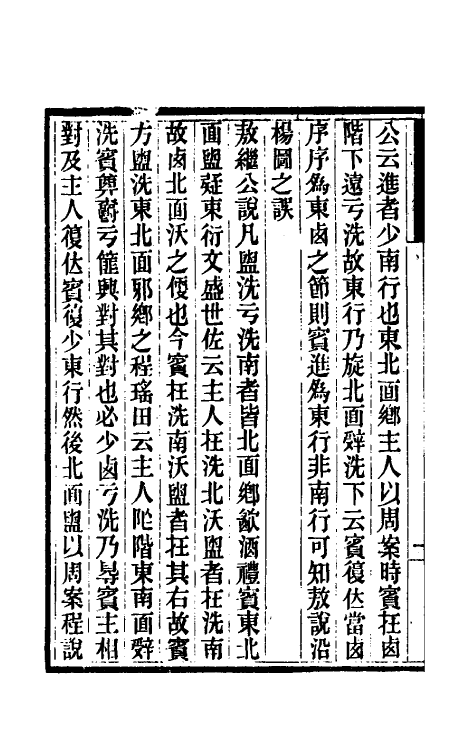 公云進者少南行也東北面鄉主人以周案時賓在㢴
階下遠亏洗故東行乃旋北面辤洗下云賓復位當㢴
序序爲東㢴之節則賓進爲東行非南行可知敖說沿
楊圖之誤
敖繼公說凡盥洗亏洗南者皆北面鄉歙酒禮賓東北
面盥疑東衍文盛世佐云主人在洗北沃盥者在洗南
故㢴北面沃之便也今賓在洗南沃盥者在其右故賓
方盥洗東北面邪鄉之程瑤田云主人阼階東南面辤
洗賓奠爵亏篚興對其對也必少㢴亏洗乃㝵賓主相
對及主人復位賓復少東行然後北面盥以周案程說